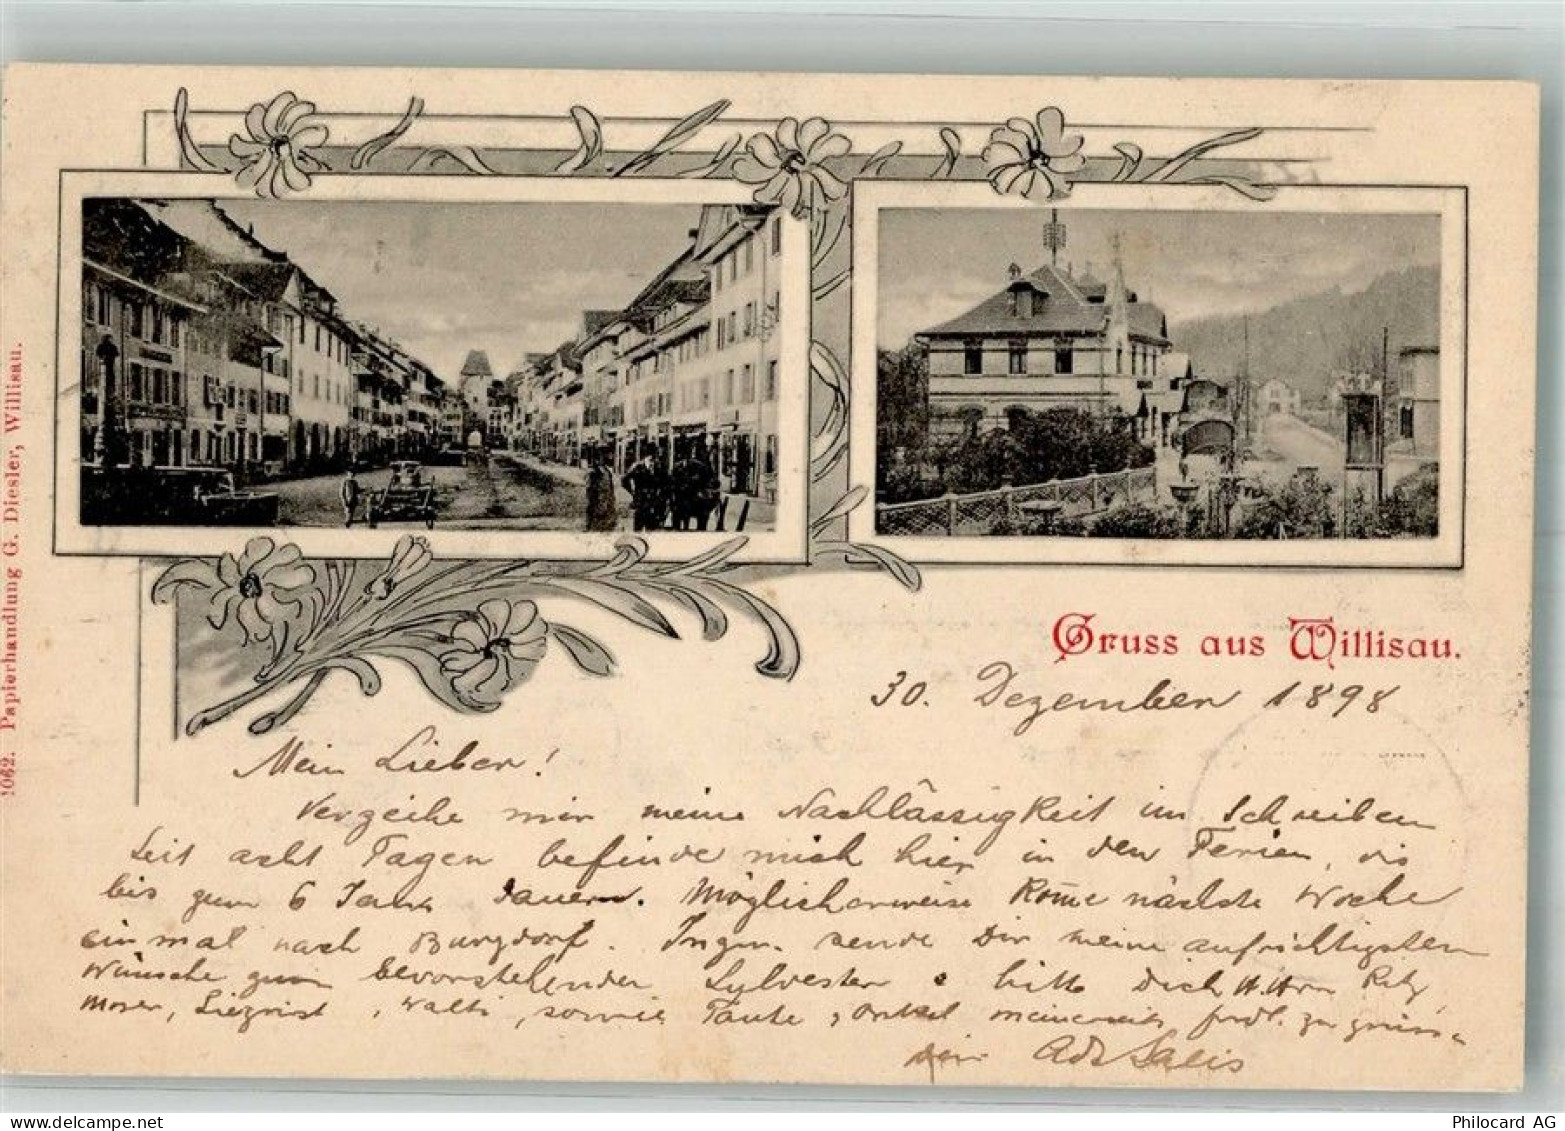 Gruss aus Willisau.
30. Dezember 1898
Mein Lieber!
Verzeihe mir meine Nachlässigkeit im Schreiben
Seit acht Tagen befinde mich hier in den Ferien, die
bis zum 6 Jan. dauern. Möglicherweise kom̄e nächste Woche
einmal nach Burgdorf. sende Dir meine aufrichtigsten
Wünsche zum bevorstehenden Sylvester & bitte Dich H. Hrn
Moser, Siegrist, Walti, sowie Tante & Onkel meinerseits frdl. zu
Dein
2062. Papierhandlung G. Diesler, Willisau.
delcampe.net
vincent123
Philocard AG